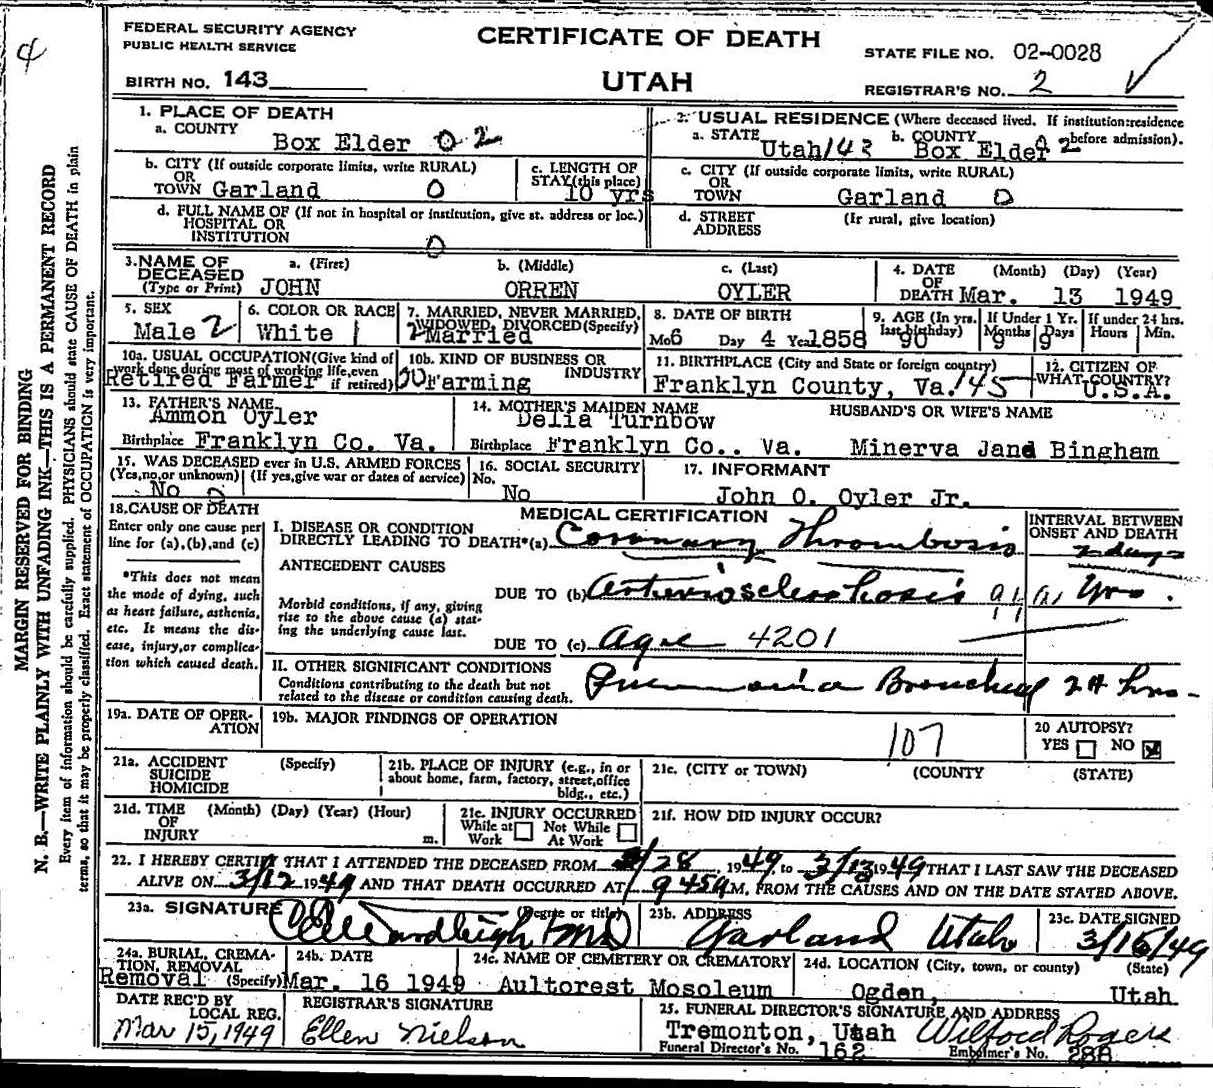 4
FEDERAL SECURITY AGENCY
PUBLIC HEALTH SERVICE
CERTIFICATE OF DEATH
STATE FILE NO. 02-0028
BIRTH NO. 143
UTAH
REGISTRAR'S NO. 2
MARGIN RESERVED FOR BINDING
N. B.—WRITE PLAINLY WITH UNFADING INK—THIS IS A PERMANENT RECORD
Every item of information should be carefully supplied. PHYSICIANS should state CAUSE OF DEATH in plain
terms, so that it may be properly classified. Exact statement of OCCUPATION is very important.
1. PLACE OF DEATH
a. COUNTY
Box Elder 0 2
2. USUAL RESIDENCE (Where deceased lived. If institution:residence
before admission).
a. STATE Utah 143 b. COUNTY Box Elder 0 2
b. CITY (If outside corporate limits, write RURAL)
OR
TOWN Garland 0
c. LENGTH OF
STAY (this place)
10 yrs
c. CITY (If outside corporate limits, write RURAL)
OR
TOWN Garland 0
d. FULL NAME OF (If not in hospital or institution, give st. address or loc.)
HOSPITAL OR
INSTITUTION 0
d. STREET (If rural, give location)
ADDRESS
3. NAME OF
DECEASED
(Type or Print)
a. (First) b. (Middle) c. (Last)
JOHN ORREN OYLER
4. DATE (Month) (Day) (Year)
OF
DEATH Mar. 13 1949
5. SEX
Male 2
6. COLOR OR RACE
White
7. MARRIED, NEVER MARRIED,
WIDOWED, DIVORCED (Specify)
Married
8. DATE OF BIRTH
Mo 6 Day 4 Year 1858
9. AGE (In yrs.
last birthday)
90
If Under 1 Yr.
Months Days
9 9
If under 24 hrs.
Hours Min.
10a. USUAL OCCUPATION (Give kind of
work done during most of working life, even
if retired)
Retired Farmer
10b. KIND OF BUSINESS OR
INDUSTRY
Farming
11. BIRTHPLACE (City and State or foreign country)
Franklyn County, Va. 145
12. CITIZEN OF
WHAT COUNTRY?
U.S.A.
13. FATHER'S NAME
Ammon Oyler
Birthplace Franklyn Co. Va.
14. MOTHER'S MAIDEN NAME
Delia Turnbow
Birthplace Franklyn Co.. Va.
HUSBAND'S OR WIFE'S NAME
Minerva Jane Bingham
15. WAS DECEASED ever in U.S. ARMED FORCES
(Yes, no, or unknown) (If yes, give war or dates of service)
No
16. SOCIAL SECURITY
No.
No
17. INFORMANT
John O. Oyler Jr.
18. CAUSE OF DEATH
Enter only one cause per
line for (a), (b), and (c)
*This does not mean
the mode of dying, such
as heart failure, asthenia,
etc. It means the dis-
ease, injury, or complica-
tion which caused death.
MEDICAL CERTIFICATION
I. DISEASE OR CONDITION
DIRECTLY LEADING TO DEATH*(a) Coronary Thrombosis
INTERVAL BETWEEN
ONSET AND DEATH
2 days
ANTECEDENT CAUSES
Morbid conditions, if any, giving
rise to the above cause (a) stat-
ing the underlying cause last.
DUE TO (b) Yrs.
DUE TO (c) Age 4201
II. OTHER SIGNIFICANT CONDITIONS
Conditions contributing to the death but not
related to the disease or condition causing death.
Pneumonia Bronchial 24 hrs-
19a. DATE OF OPER-
ATION
19b. MAJOR FINDINGS OF OPERATION
107
20 AUTOPSY?
YES NO
21a. ACCIDENT (Specify)
SUICIDE
HOMICIDE
21b. PLACE OF INJURY (e.g., in or
about home, farm, factory, street, office
bldg., etc.)
21c. (CITY or TOWN) (COUNTY) (STATE)
21d. TIME (Month) (Day) (Year) (Hour)
OF
INJURY m.
21e. INJURY OCCURRED
While at Work Not While At Work
21f. HOW DID INJURY OCCUR?
22. I HEREBY CERTIFY THAT I ATTENDED THE DECEASED FROM /28, 1949, to 3/13 1949 THAT I LAST SAW THE DECEASED
ALIVE ON 3/12 1949 AND THAT DEATH OCCURRED AT 9 45 a M, FROM THE CAUSES AND ON THE DATE STATED ABOVE.
23a. SIGNATURE (Degree or title)
MD
23b. ADDRESS
Garland Utah
23c. DATE SIGNED
3/15/49
24a. BURIAL, CREMA-
TION, REMOVAL
(Specify)
Removal
24b. DATE
Mar. 16 1949
24c. NAME OF CEMETERY OR CREMATORY
Aultorest Mosoleum
24d. LOCATION (City, town, or county) (State)
Ogden, Utah
DATE REC'D BY
LOCAL REG.
Mar 15, 1949
REGISTRAR'S SIGNATURE
Ellen Nielson
25. FUNERAL DIRECTOR'S SIGNATURE AND ADDRESS
Tremonton, Utah Wilford Rogers
Funeral Director's No. 162 Embalmer's No. 288